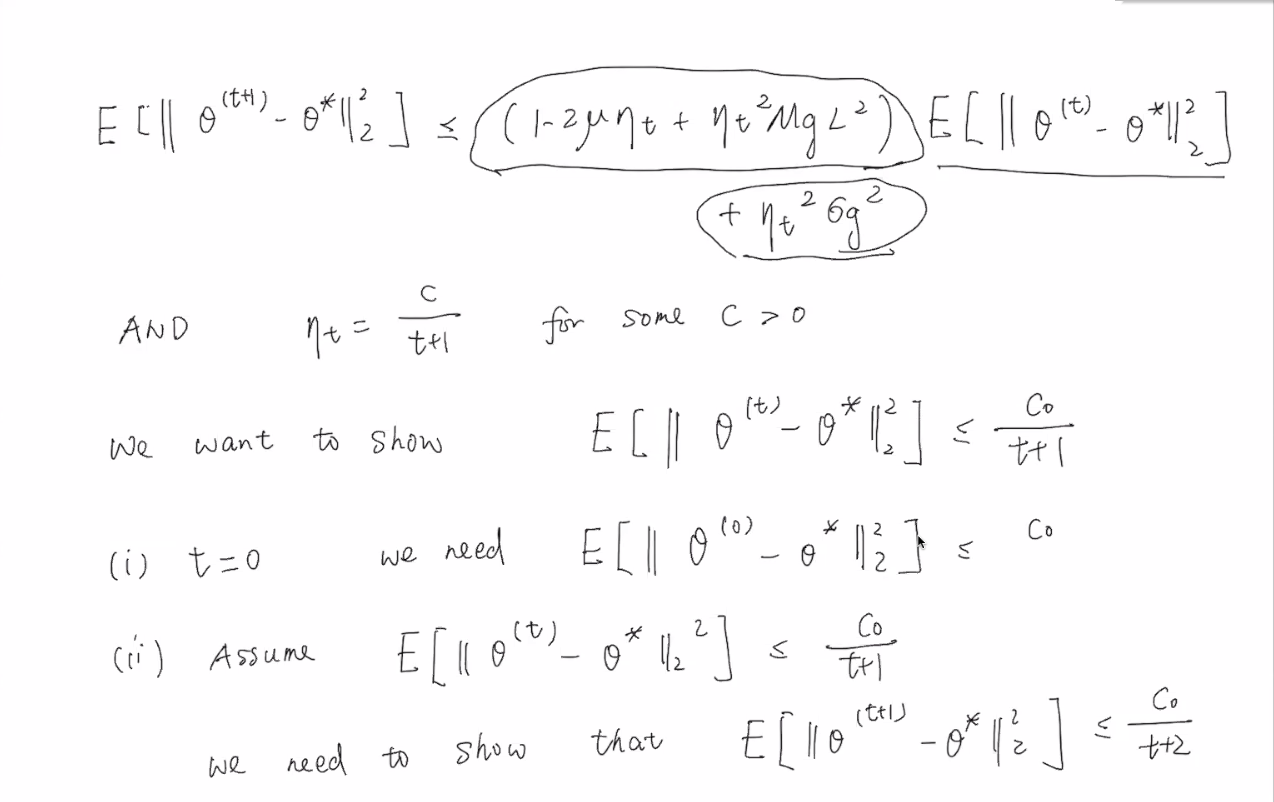 E[‖θ^(t+1) - θ*‖₂²] ≤ (1-2μη_t + η_t² M_g L²) E[‖θ^(t) - θ*‖₂²]
+ η_t² σ_g²
AND η_t = c/(t+1) for some c > 0
we want to show E[‖θ^(t) - θ*‖₂²] ≤ C₀/(t+1)
(i) t=0 we need E[‖θ^(0) - θ*‖₂²] ≤ C₀
(ii) Assume E[‖θ^(t) - θ*‖₂²] ≤ C₀/(t+1)
we need to show that E[‖θ^(t+1) - θ*‖₂²] ≤ C₀/(t+2)